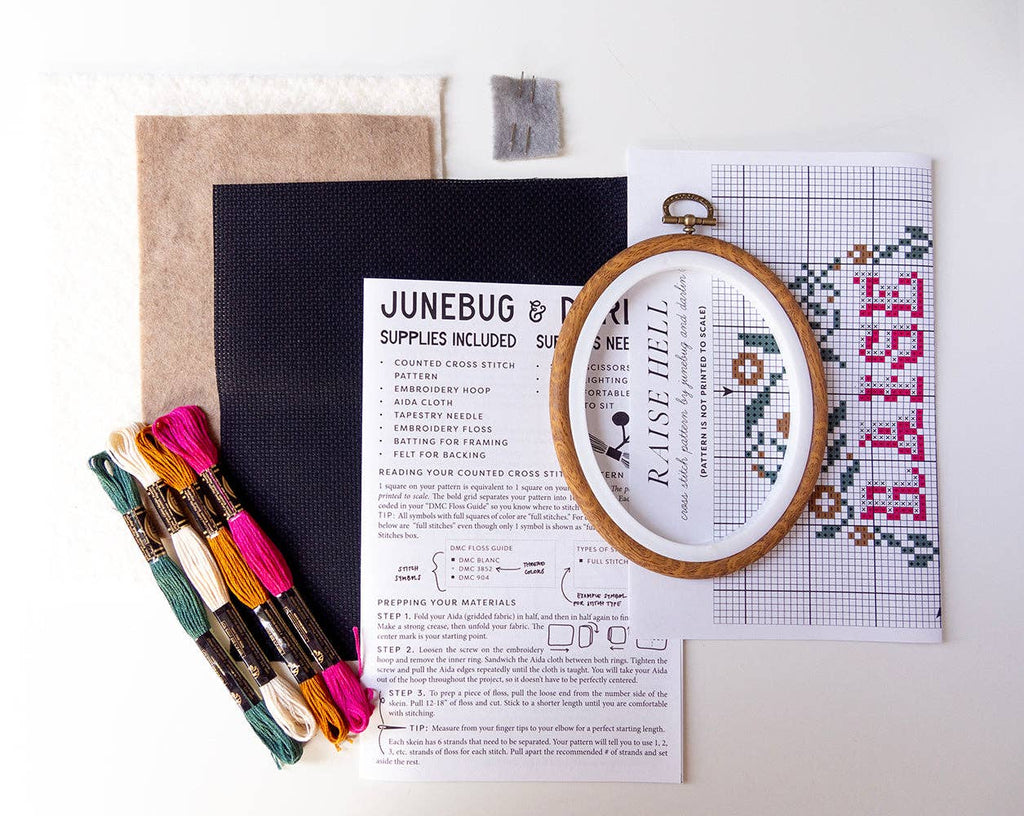 JUNEBUG &
SUPPLIES INCLUDED
• COUNTED CROSS STITCH
PATTERN
• EMBROIDERY HOOP
• AIDA CLOTH
• TAPESTRY NEEDLE
• EMBROIDERY FLOSS
• BATTING FOR FRAMING
• FELT FOR BACKING
SCISSORS
TO SIT
READING YOUR COUNTED CROSS
1 square on your pattern is equivalent to 1 square on your
printed to scale. The bold grid separates your pattern into
coded in your "DMC Floss Guide" so you know where to stitch
TIP: All symbols with full squares of color are "full stitches." For
below are "full stitches" even though only 1 symbol is shown as
Stitches box.
STITCH
SYMBOLS
DMC FLOSS GUIDE
DMC BLANC
DMC 3852
DMC 904
THREAD
COLORS
TYPES OF
FULL STITCH
EXAMPLE SYMBOL
FOR STITCH TYPE
PREPPING YOUR MATERIALS
STEP 1. Fold your Aida (gridded fabric) in half, and then in half again to
Make a strong crease, then unfold your fabric. The
center mark is your starting point.
STEP 2. Loosen the screw on the embroidery
hoop and remove the inner ring. Sandwich the Aida cloth between both rings. Tighten the
screw and pull the Aida edges repeatedly until the cloth is taught. You will take your Aida
out of the hoop throughout the project, so it doesn't have to be perfectly centered.
STEP 3. To prep a piece of floss, pull the loose end from the number side of the
skein. Pull 12-18" of floss and cut. Stick to a shorter length until you are comfortable
with stitching.
TIP: Measure from your finger tips to your elbow for a perfect starting length.
Each skein has 6 strands that need to be separated. Your pattern will tell you to use 1, 2,
3, etc. strands of floss for each stitch. Pull apart the recommended # of strands and set
aside the rest.
RAISE HELL
cross stitch pattern by junebug and darlin
(PATTERN IS NOT PRINTED TO SCALE)
RAISE